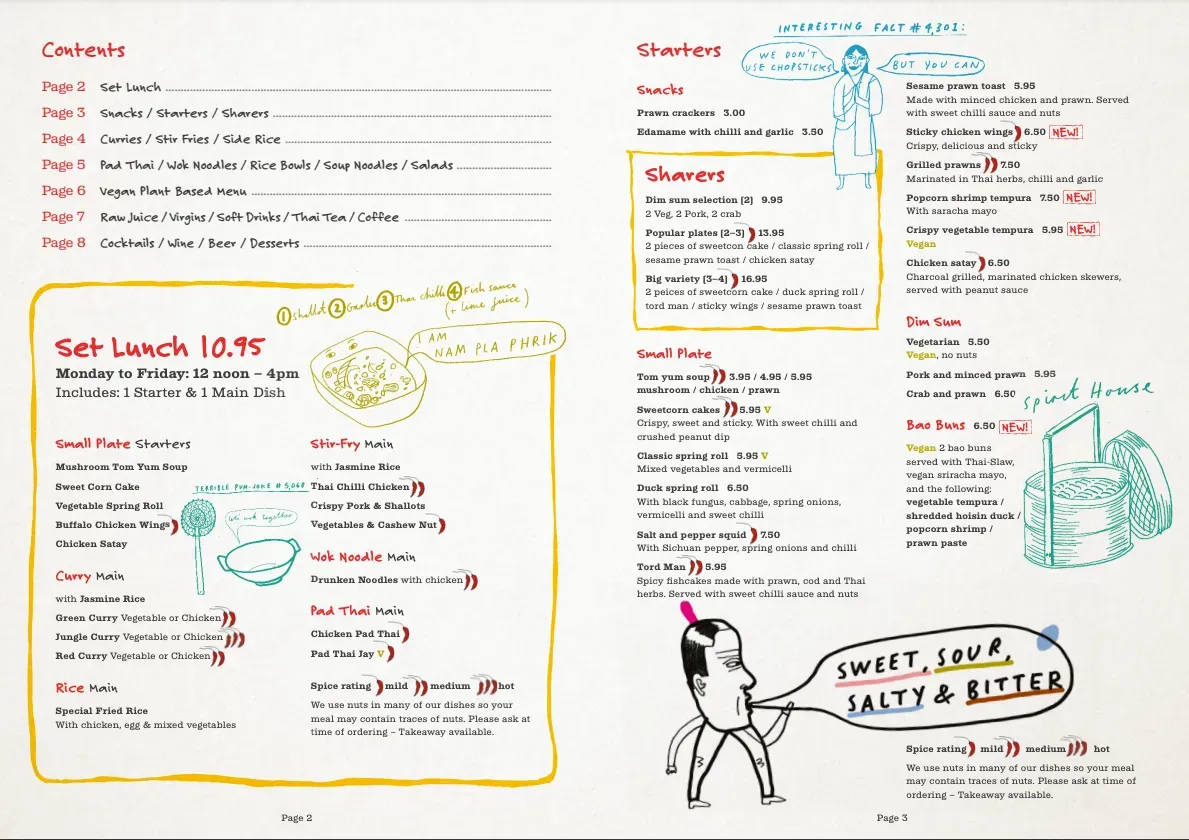 Contents
Page 2 Set Lunch
Page 3 Snacks / Starters / Sharers
Page 4 Curries / Stir Fries / Side Rice
Page 5 Pad Thai / Wok Noodles / Rice Bowls / Soup Noodles / Salads
Page 6 Vegan Plant Based Menu
Page 7 Raw Juice / Virgins / Soft Drinks / Thai Tea / Coffee
Page 8 Cocktails / Wine / Beer / Desserts
1 Shallot 2 Garlic 3 Thai chilli 4 Fish sauce
(+ lime juice)
I AM
NAM PLA PHRIK
Set Lunch 10.95
Monday to Friday: 12 noon – 4pm
Includes: 1 Starter & 1 Main Dish
Small Plate Starters
Mushroom Tom Yum Soup
Sweet Corn Cake
Vegetable Spring Roll
Buffalo Chicken Wings
Chicken Satay
TERRIBLE PUN-JOKE # 5,068
Curry Main
with Jasmine Rice
Green Curry Vegetable or Chicken
Jungle Curry Vegetable or Chicken
Red Curry Vegetable or Chicken
Rice Main
Special Fried Rice
With chicken, egg & mixed vegetables
Stir-Fry Main
with Jasmine Rice
Thai Chilli Chicken
Crispy Pork & Shallots
Vegetables & Cashew Nut
Wok Noodle Main
Drunken Noodles with chicken
Pad Thai Main
Chicken Pad Thai
Pad Thai Jay V
Spice rating mild medium hot
We use nuts in many of our dishes so your
meal may contain traces of nuts. Please ask at
time of ordering – Takeaway available.
Page 2
INTERESTING FACT # 4,301:
WE DON'T
USE CHOPSTICKS
BUT YOU CAN
Starters
Snacks
Prawn crackers 3.00
Edamame with chilli and garlic 3.50
Sharers
Dim sum selection [2] 9.95
2 Veg, 2 Pork, 2 crab
Popular plates [2–3] 13.95
2 pieces of sweetcon cake / classic spring roll /
sesame prawn toast / chicken satay
Big variety [3–4] 16.95
2 peices of sweetcorn cake / duck spring roll /
tord man / sticky wings / sesame prawn toast
Small Plate
Tom yum soup 3.95 / 4.95 / 5.95
mushroom / chicken / prawn
Sweetcorn cakes 5.95 V
Crispy, sweet and sticky. With sweet chilli and
crushed peanut dip
Classic spring roll 5.95 V
Mixed vegetables and vermicelli
Duck spring roll 6.50
With black fungus, cabbage, spring onions,
vermicelli and sweet chilli
Salt and pepper squid 7.50
With Sichuan pepper, spring onions and chilli
Tord Man 5.95
Spicy fishcakes made with prawn, cod and Thai
herbs. Served with sweet chilli sauce and nuts
Sesame prawn toast 5.95
Made with minced chicken and prawn. Served
with sweet chilli sauce and nuts
Sticky chicken wings 6.50 NEW!
Crispy, delicious and sticky
Grilled prawns 7.50
Marinated in Thai herbs, chilli and garlic
Popcorn shrimp tempura 7.50 NEW!
With saracha mayo
Crispy vegetable tempura 5.95 NEW!
Vegan
Chicken satay 6.50
Charcoal grilled, marinated chicken skewers,
served with peanut sauce
Dim Sum
Vegetarian 5.50
Vegan, no nuts
Pork and minced prawn 5.95
Crab and prawn 6.50
Spirit House
Bao Buns 6.50 NEW!
Vegan 2 bao buns
served with Thai-Slaw,
vegan sriracha mayo,
and the following:
vegetable tempura /
shredded hoisin duck /
popcorn shrimp /
prawn paste
SWEET, SOUR,
SALTY & BITTER
Spice rating mild medium hot
We use nuts in many of our dishes so your meal
may contain traces of nuts. Please ask at time of
ordering – Takeaway available.
Page 3